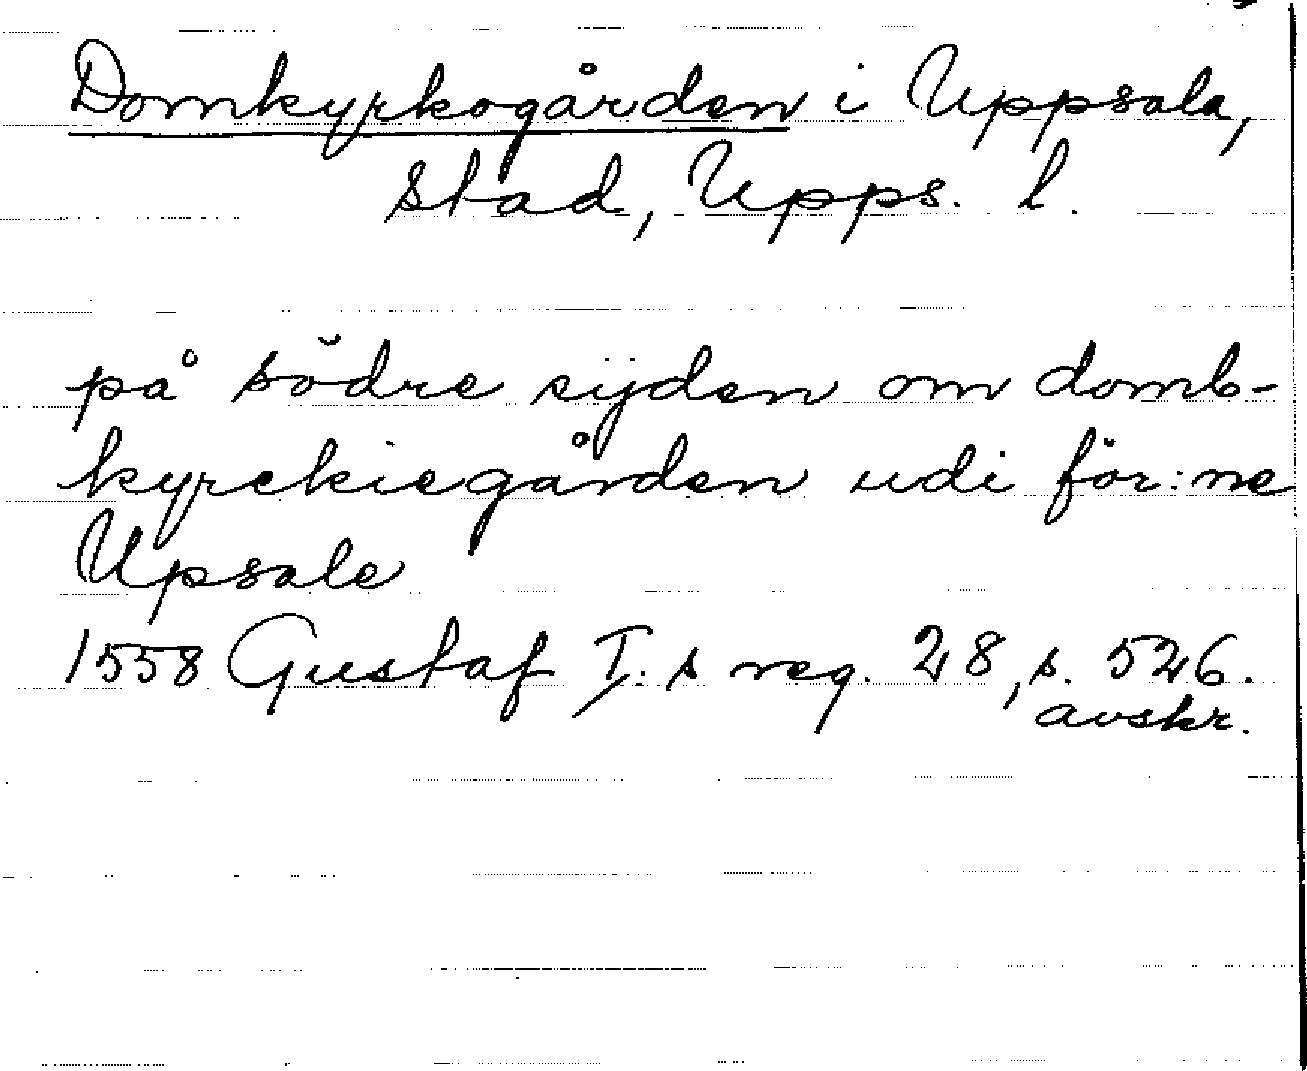 Domkyrkogården i Uppsala,
stad, Upps. l.
på södre sÿden om domb-
kyrckiegården udi för:ne
Upsale
1558 Gustaf I:s reg. 28, s. 526.
avskr.